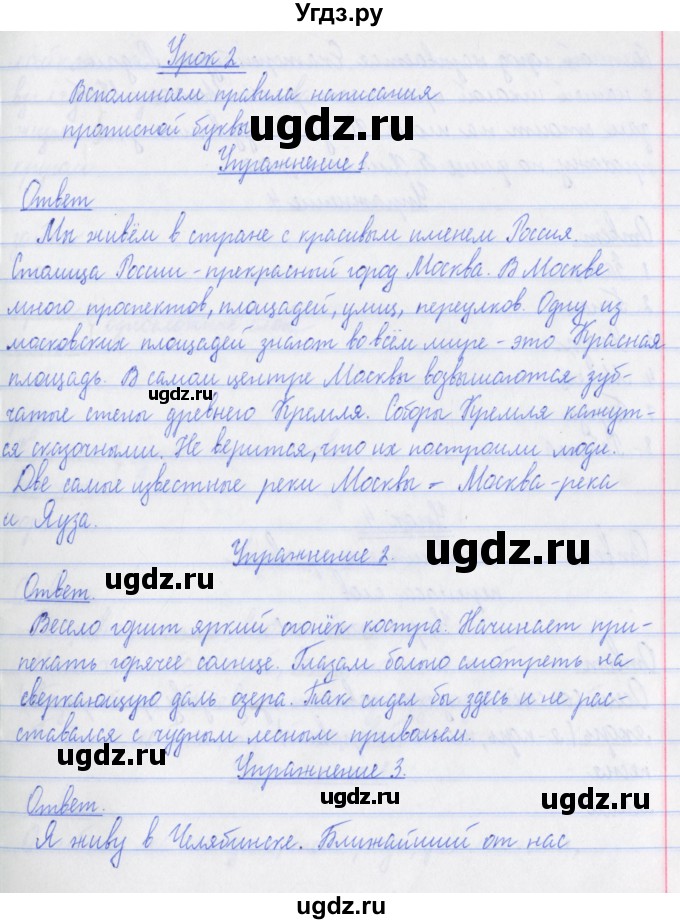 Угдз.ру
Урок 2
Вспоминаем правила написания
прописной буквы
ugdz.ru
Упражнение 1.
Ответ
Мы живём в стране с красивым именем Россия.
Столица России - прекрасный город Москва. В Москве
много проспектов, площадей, улиц, переулков. Одну из
московских площадей знают во всём мире - это Красная
площадь. В самом центре Москвы возвышаются зуб-
ugdz.ru
чатые стены древнего Кремля. Соборы Кремля кажут-
ся сказочными. Не верится, что их построили люди.
Две самые известные реки Москвы - Москва-река
и Яуза.
ugdz.ru
Упражнение 2.
ugdz.ru
Ответ.
Весело горит яркий огонёк костра. Начинает при-
пекать горячее солнце. Глазам больно смотреть на
сверкающую даль озера. Так сидел бы здесь и не рас-
ставался с чудным лесным привольем.
ugdz.ru
Упражнение 3.
ugdz.ru
Ответ.
Я живу в Челябинске. Ближайший от нас
ugdz.ru